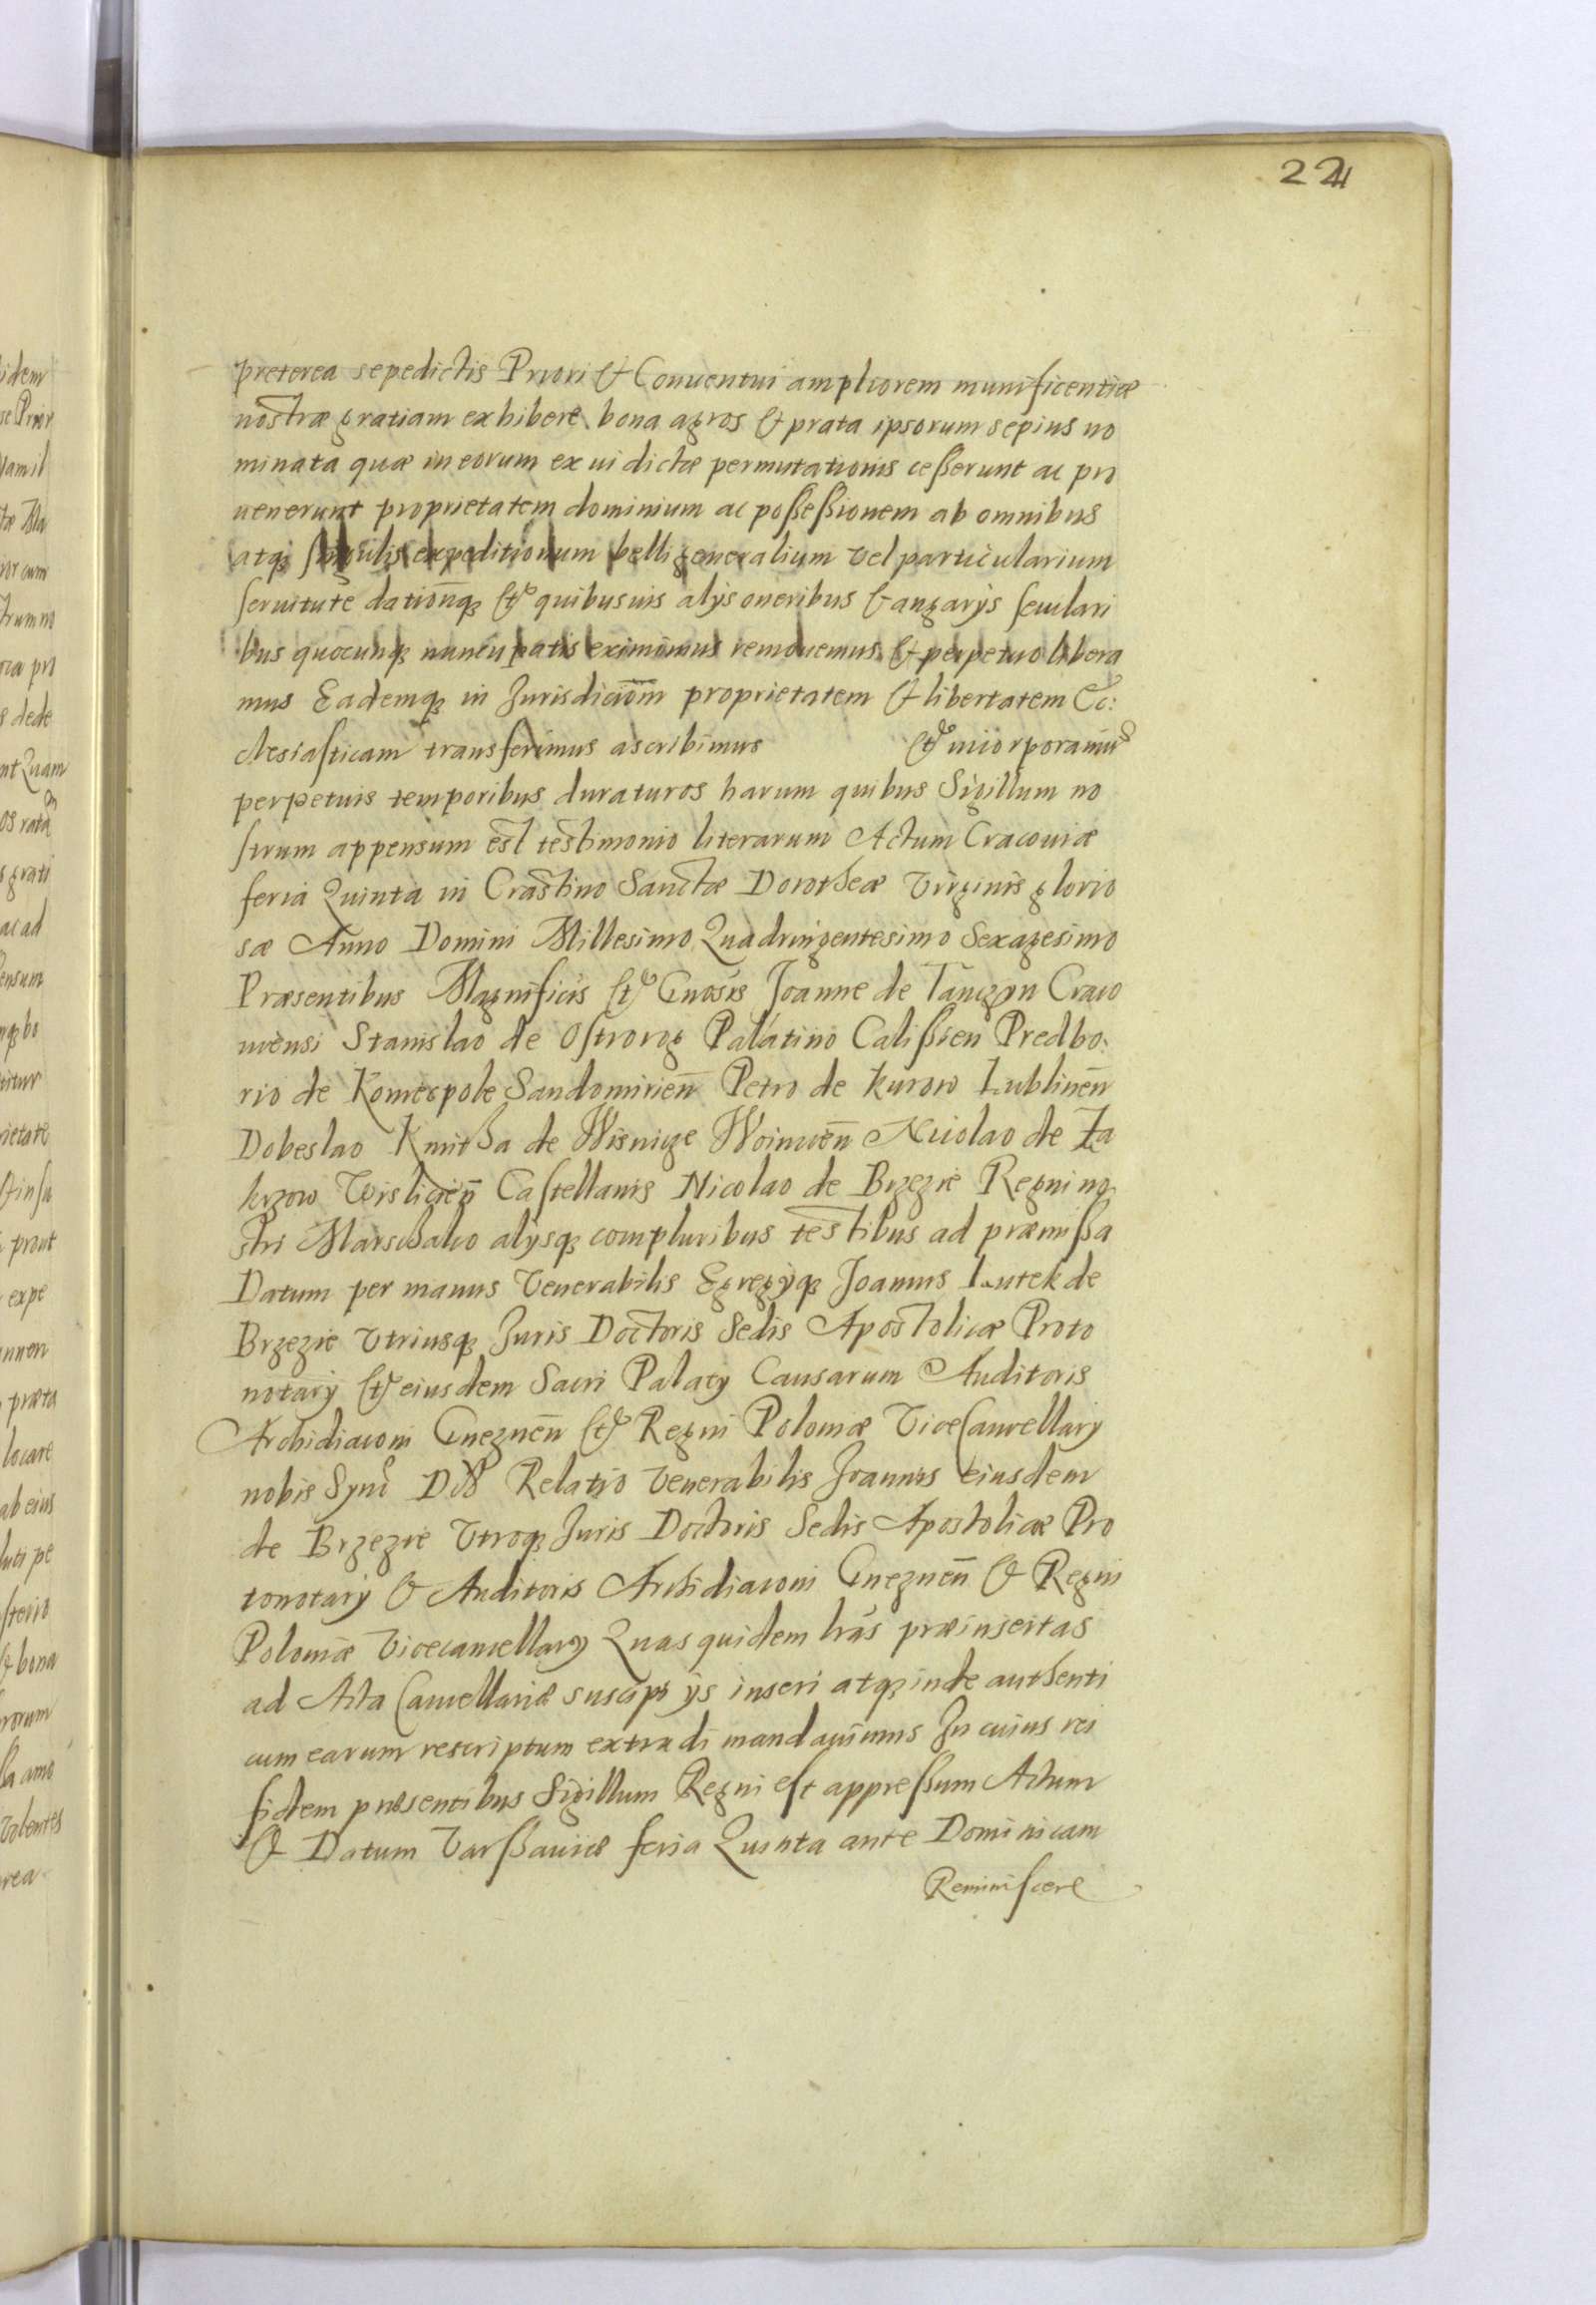 224
preterea sepedictis Priori & Conuentui ampliorem munificentiæ
nostræ gratiam exhibere bona agros & prata ipsorum sepius no
minata quæ in eorum ex ui dictæ permutationis cesserunt ac pro
uenerunt proprietatem dominium ac possessionem ab omnibus
atq singulis expeditionum belli generalium vel particularium
seruitute dationq̃ & quibusuis alys oneribus & angarys seculari
bus quocunq nuncupatis eximimus remouemus & perpetuo libera
mus Eademq in Jurisdiciom̃ proprietatem & libertatem Ec:
clesiasticam transferimus ascribimus & incorporamus
perpetuis temporibus duraturos harum quibus Sigillum no
strum appensum est testimonio literarum Actum Cracouiæ
feria Quinta in Crastino Sanctæ Dorotheæ Virginis glorio
sæ Anno Domini Millesimo Quadringentesimo Sexagesimo
Præsentibus Magnificis & Gnosis Joanne de Tanczyn Craco
uiensi Stanislao de Ostrorog Palatino Calissien Predbo:
rio de Koniecpole Sandomirien̄ Petro de Kurow Lublinen̄
Dobeslao Kmitha de Wisnicze Woinicen̄ Nicolao de Za
krzow Vislicien̄ Castellanis Nicolao de Brzezie Regni no
stri Marschalco alysq compluribus testibus ad præmissa
Datum per manus Venerabilis Egregyq Joannis Lutek de
Brzezie Vtriusq Juris Doctoris Sedis Apostolicæ Proto
notary & eiusdem Sacri Palacy Causarum Auditoris
Archidiaconi Gneznen̄ & Regni Poloniæ ViceCancellary
nobis Relatio Venerabilis Joannis eiusdem
de Brzezie Vtroq Juris Doctoris Sedis Apostolicæ Pro
tonotary & Auditoris Archidiaconi Gneznen̄ & Regni
Poloniæ Vicecancellary Quas quidem lras præinsertas
ad Acta Cancellariæ suscipi ys inseri atq inde authenti
cum earum rescriptum extradi mandauimus In cuius rei
fidem præsentibus Sigillum Regni est appressum Actum
& Datum Varssauiæ feria Quinta ante Dominicam
Reminiscere